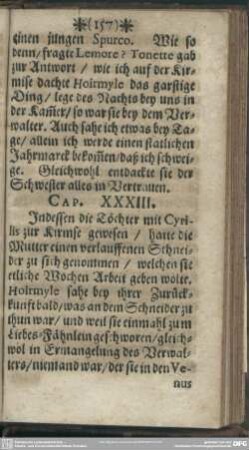 (157)
einen jungen Spurco. Wie so
denn/ fragte Lemore? Tonette gab
zur Antwort/ wie ich auf der Kir-
mise dachte Hoirmyle das garstige
Ding/ lege des Nachts bey uns in
der Kam̃er/ so war sie bey dem Ver-
walter. Auch sahe ich etwas bey Ta-
ge/ allein ich werde einen statlichen
Jahrmarck bekom̃en/ daß ich schwei-
ge. Gleichwohl entdackte sie der
Schwester alles in Vertrauen.
CAP. XXXIII.
Indessen die Töchter mit Cyri-
lis zur Kirmse gewesen/ hatte die
Mutter einen verlauffenen Schnei-
der zu sich genommen/ welchen sie
etliche Wochen Arbeit geben wolte.
Hoirmyle sahe bey ihrer Zurück-
kunft bald/ was an dem Schneider zu
thun war/ und weil sie einmahl zum
Liebes-Fähnlein geschworen/ gleich-
wol in Ermangelung des Verwal-
ters/ niemand war/ der sie in den Ve-
nus